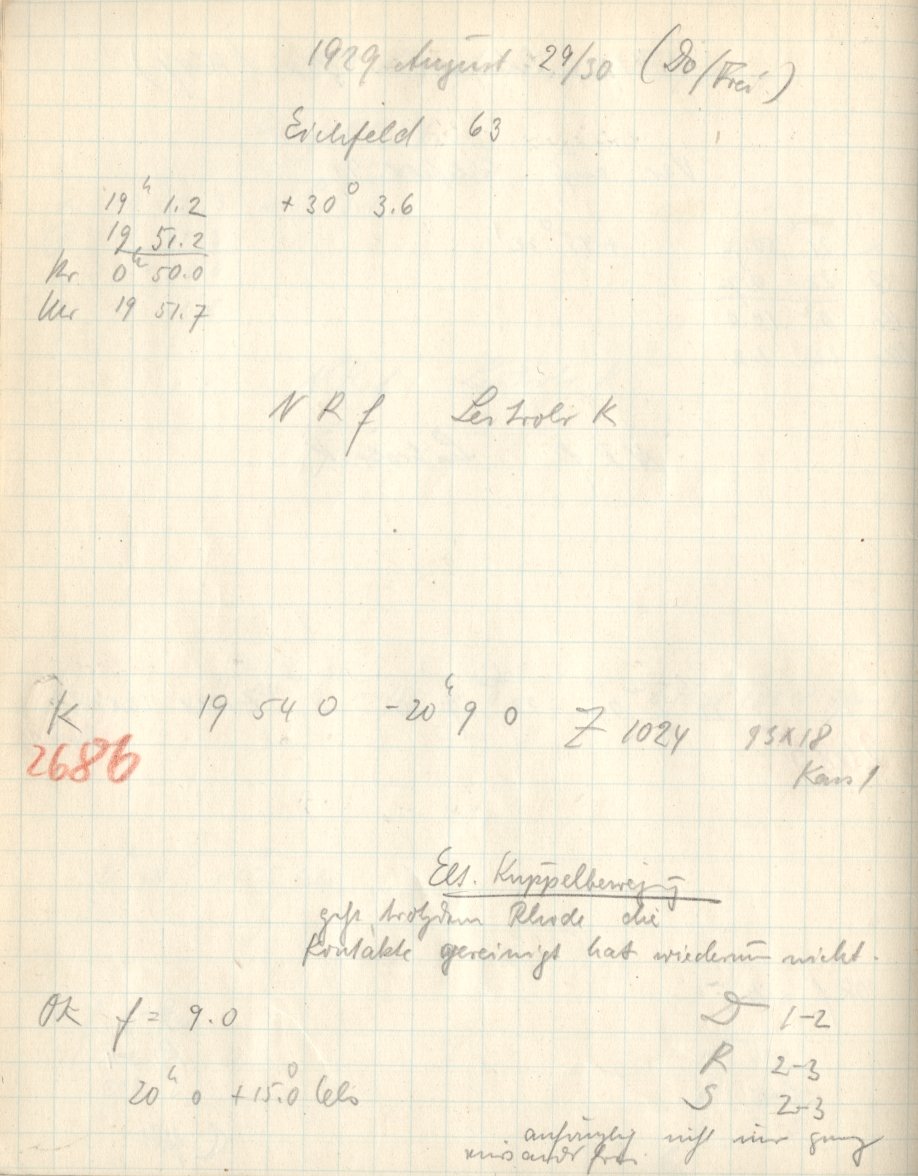 1929 August 29/30 (Do/Frei)
Eichfeld 63
19ʰ 1.2 +30° 3.6
19 51.2
0ʰ 50.0
Uhr 19 51.7
N R f Leitrohr K
K 19 54 0 -20ʰ 9 0 Z 1024 93x18
2686
Kass 1
Elt. Kuppelbewegg
geht trotzdem Rhode die
Kontakte gereinigt hat wiederum nicht.
OK f = 9.0 D 1-2
R 2-3
20ʰ 0 +15.0° Cels
S 2-3
anfänglich nicht nur ganz